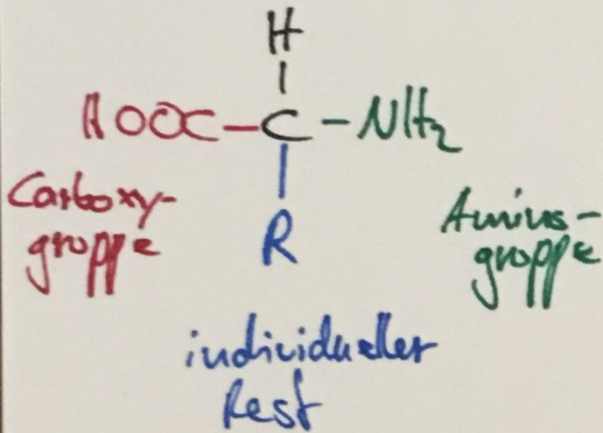 H
HOOC-C-NH2
Carboxy-
gruppe
R
Amino-
gruppe
individueller
Rest